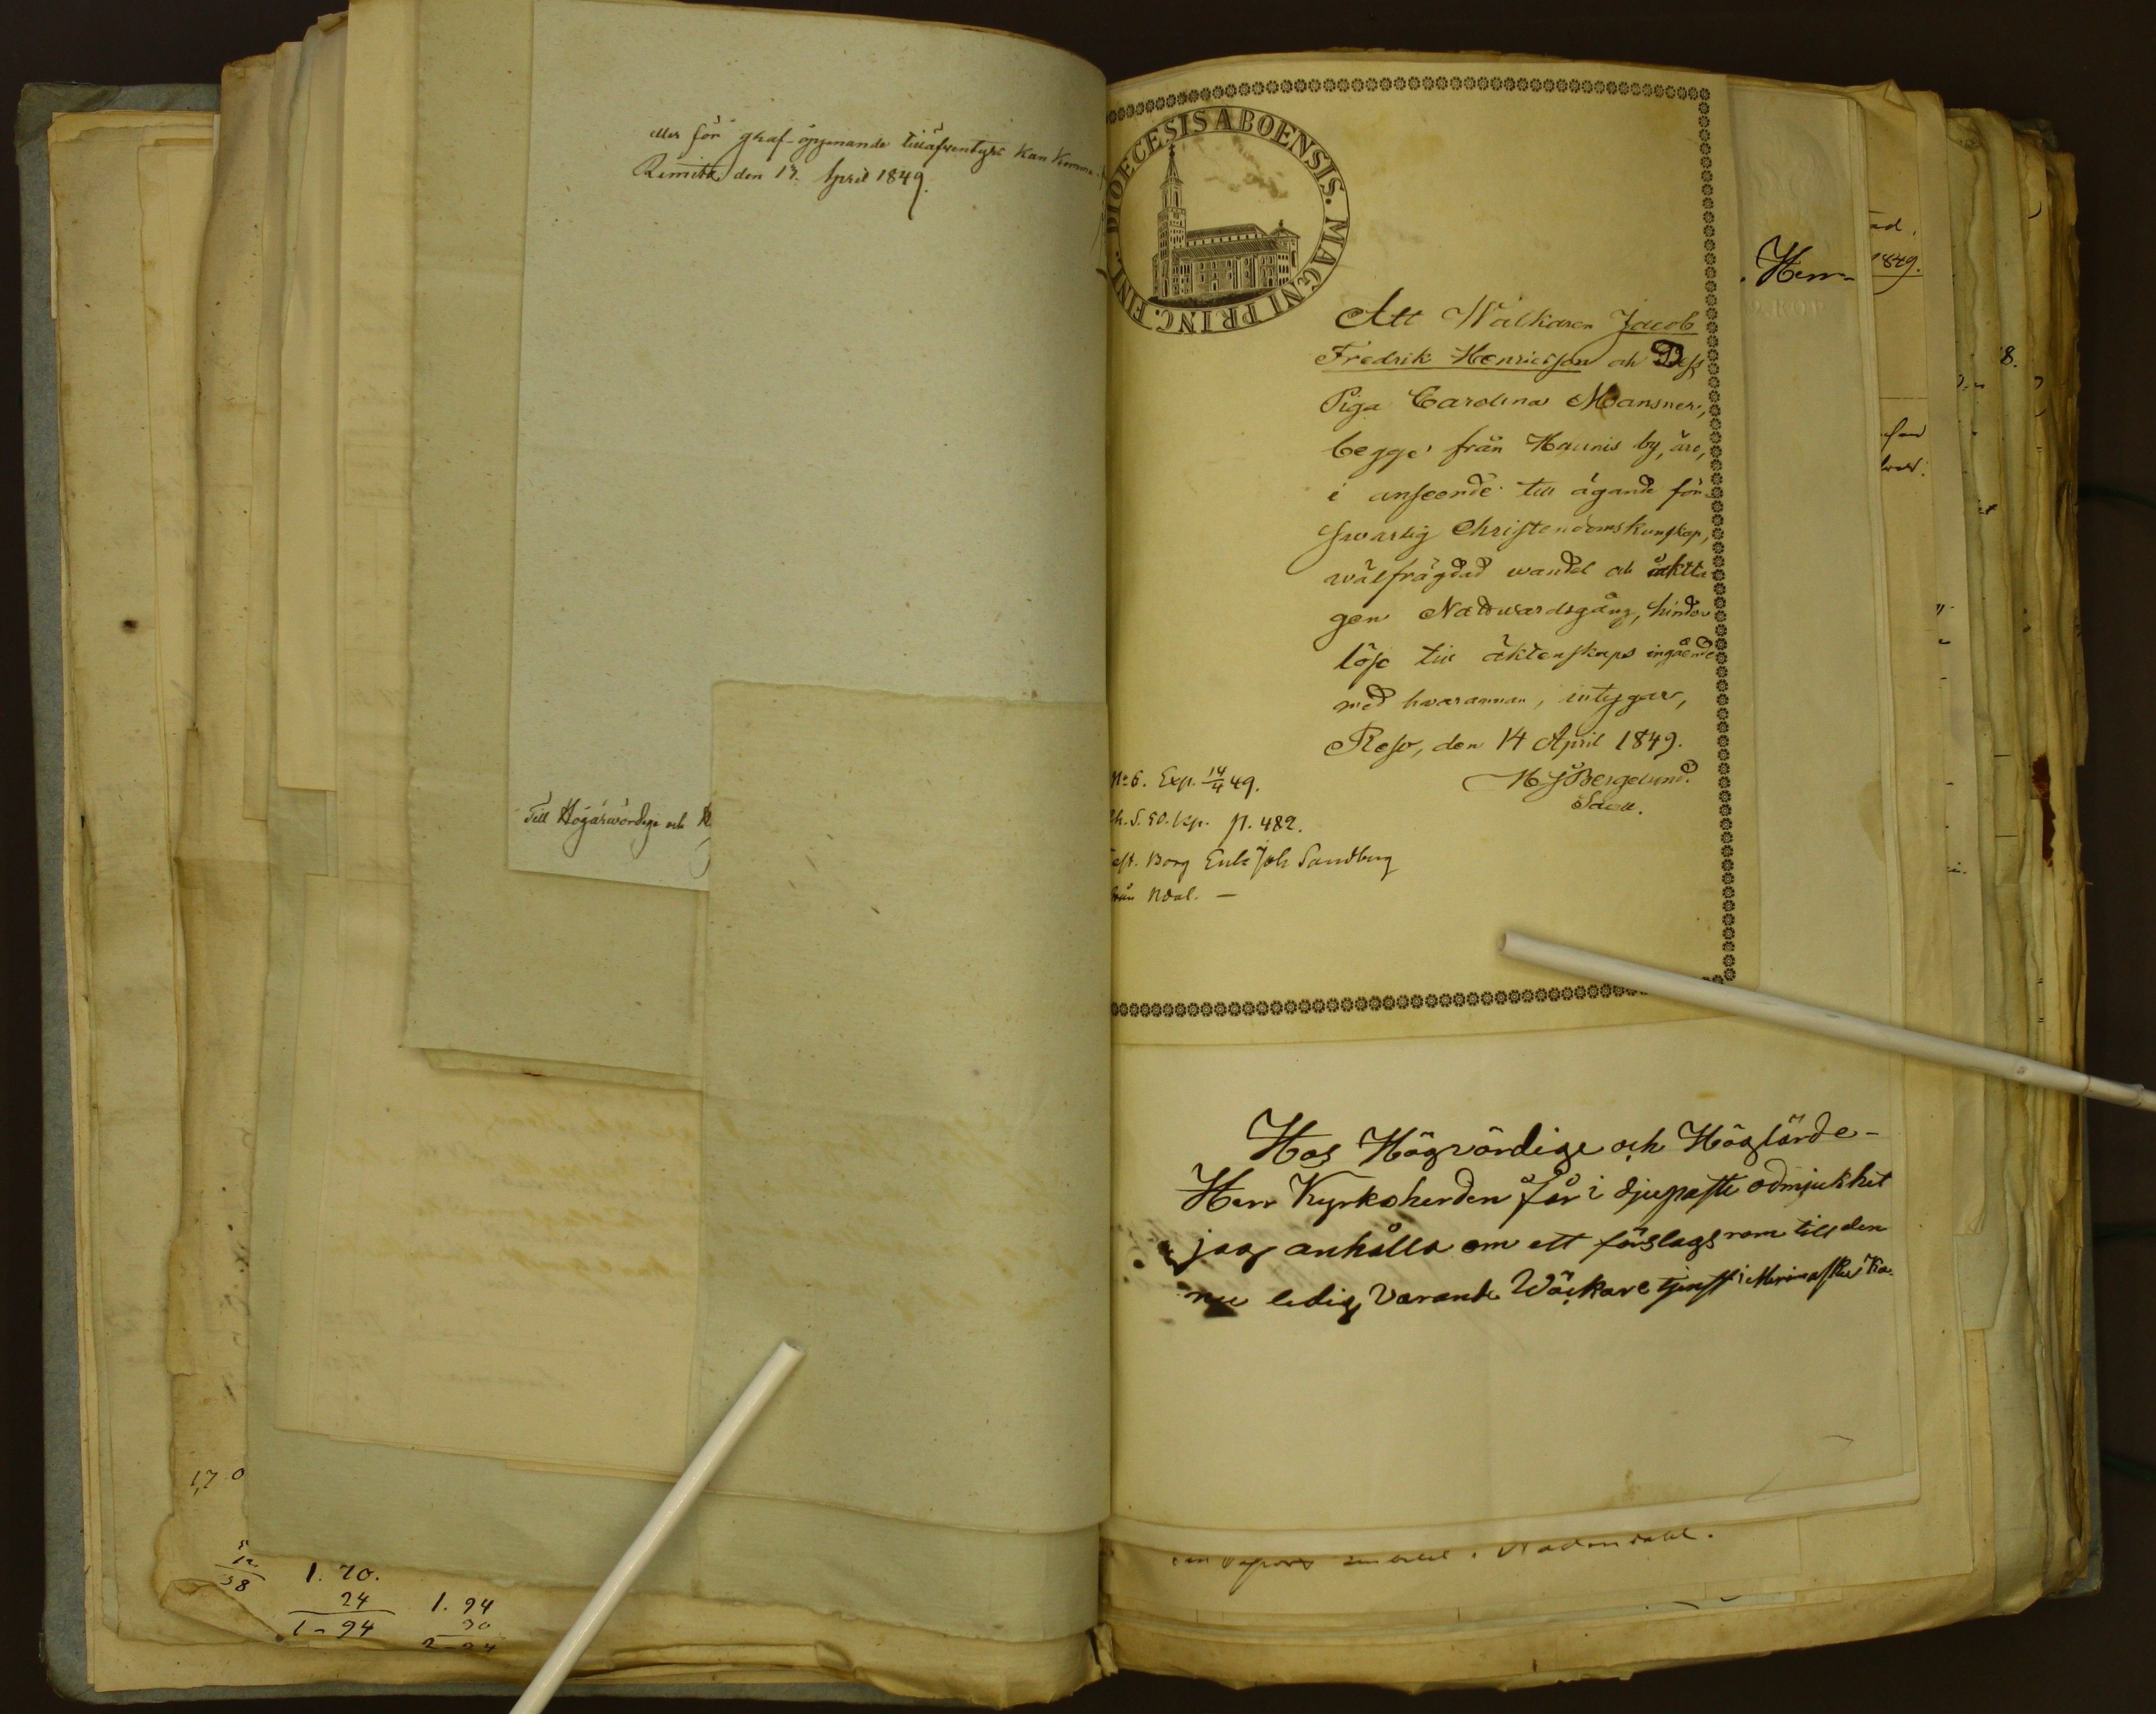 eller för graf-öppnande tilläfventyrs kan komma
Rimito den 17. April 1849.
Till Högärevördige och
1. 70.
24
1-94
1. 94
30
2-24
17 0
12
38
DIOECESIS ABOENSIS. MAGNI PRINC. FINL.
Att Walkaren Jacob
Fredrik Henricsson och Dess
Piga Carolina Mansner,
begge från Haunis by, äre,
i anseende till ägande för-
swarlig Christendomskunskap,
wälfrägdad wandel och iaktta-
gen Nattwardsgång, hinder-
löse till äktenskaps ingående
med hwarannan, intygar,
Reso, den 14 April 1849.
H J Bergelund.
Sacell.
No 6. Exp. 14/4 49.
Ch. S. 50. kp. p. 482.
Test. Borg Enk Joh Sandberg
från Ndal. —
Herr
1849.
8.
Hos Högvördige och Höglärde-
Herr Kyrkoherden får i djupaste ödmjukhet
jag anhålla om ett förslags rom till den
nu ledig varande Wäckare tjenst i
Nådendahl.